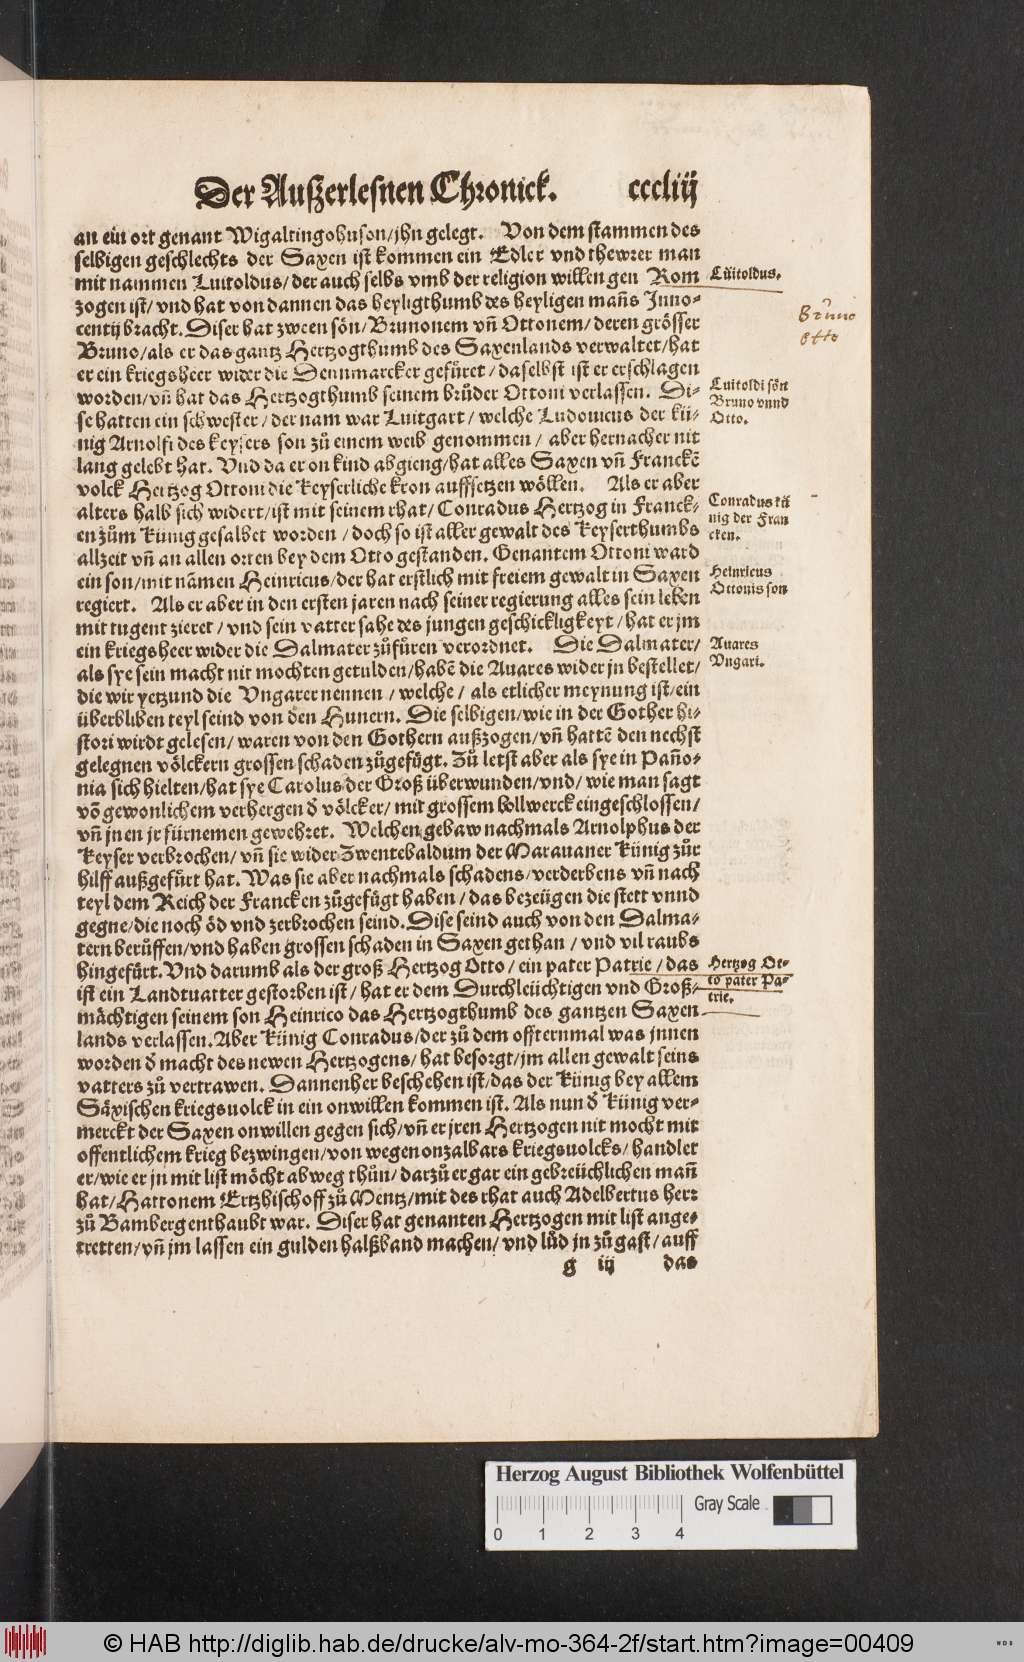 Der Außerlesnen Chronick. cccliij
an ein ort genant Wigaltingohuson/jhn gelegt. Von dem stammen des
selbigen geschlechts der Saxen ist kommen ein Edler vnd thewrer man
mit nammen Luitoldus/der auch selbs vmb der religion willen gen Rom
Lüitoldus.
zogen ist/vnd hat von dannen das heyligthumb des heyligen mañs Inno-
centij bracht. Diser hat zween sön/Brunonem vñ Ottonem/deren grösser
Bruno
Otto
Bruno/als er das gantz Hertzogthumb des Saxenlands verwaltet/hat
er ein kriegsheer wider die Dennmarcker gefüret/daselbst ist er erschlagen
worden/vñ hat das Hertzogthumb seinem brůder Ottoni verlassen. Di-
Luitoldi sön
Bruno vnnd
Otto.
se hatten ein schwester/der nam war Luitgart/welche Ludouicus der kü-
nig Arnolfi des keysers son zů einem weib genommen/aber hernacher nit
lang gelebt hat. Vnd da er on kind abgieng/hat alles Saxen vñ Franckē
volck Hertzog Ottoni die Keyserliche kron auffsetzen wöllen. Als er aber
alters halb sich widert/ist mit seinem rhat/Conradus Hertzog in Franck-
Conradus kü
nig der Fran
cken.
en zům Künig gesalbet worden/doch so ist aller gewalt des Keyserthumbs
allzeit vñ an allen orten bey dem Otto gestanden. Genantem Ottoni ward
ein son/mit nāmen Heinricus/der hat erstlich mit freiem gewalt in Saxen
Heinricus
Ottonis son
regiert. Als er aber in den ersten jaren nach seiner regierung alles sein leben
mit tugent zieret/vnd sein vatter sahe des jungen geschickligkeyt/hat er jm
ein kriegsheer wider die Dalmater zůfüren verordnet. Die Dalmater/
Auares
Vngari.
als sye sein macht nit mochten getulden/habē die Auares wider jn bestellet/
die wir yetzund die Vngarer nennen/welche/als etlicher meynung ist/ein
überbliben teyl seind von den Hunern. Die selbigen/wie in der Gother hi-
stori wirdt gelesen/waren von den Gothern außzogen/vñ hattē den nechst
gelegnen völckern grossen schaden zůgefügt. Zů letst aber als sye in Paño-
nia sich hielten/hat sye Carolus der Groß überwunden/vnd/wie man sagt
vō gewonlichem verhergen ď völcker/mit grossem bollwerck eingeschlossen/
vñ jnen jr fürnemen gewehret. Welchen gebaw nachmals Arnolphus der
Keyser verbrochen/vñ sie wider Zwentebaldum der Marauaner Künig zůr
hilff außgefürt hat. Was sie aber nachmals schadens/verderbens vñ nach
teyl dem Reich der Francken zůgefügt haben/das bezeügen die stett vnnd
gegne/die noch öd vnd zerbrochen seind. Dise seind auch von den Dalma-
tern berůffen/vnd haben grossen schaden in Saxen gethan/vnd vil raubs
hingefürt. Vnd darumb als der groß Hertzog Otto/ein pater Patrie/das
Hertzog Ot-
to pater Pa-
trie.
ist ein Landtuatter gestorben ist/hat er dem Durchleüchtigen vnd Groß-
mächtigen seinem son Heinrico das Hertzogthumb des gantzen Saxen
lands verlassen. Aber Künig Conradus/der zů dem offternmal was jnnen
worden ď macht des newen Hertzogens/hat besorgt/jm allen gewalt seins
vatters zů vertrawen. Dannenher beschehen ist/das der Künig bey allem
Säxischen kriegsuolck in ein onwillen kommen ist. Als nun ď Künig ver-
merckt der Saxen onwillen gegen sich/vñ er jren Hertzogen nit mocht mit
offentlichem krieg bezwingen/von wegen onzalbars kriegsuolcks/handlet
er/wie er jn mit list möcht abweg thůn/darzů er gar ein gebreüchlichen mañ
hat/Hattonem Ertzbischoff zů Mentz/mit des rhat auch Adelbertus herr
zů Bamberg enthaubt war. Diser hat genanten Hertzogen mit list ange-
tretten/vñ jm lassen ein gulden halßband machen/vnd lůd jn zů gast/auff
g iij das
Herzog August Bibliothek Wolfenbüttel
Gray Scale
0 1 2 3 4
© HAB http://diglib.hab.de/drucke/alv-mo-364-2f/start.htm?image=00409